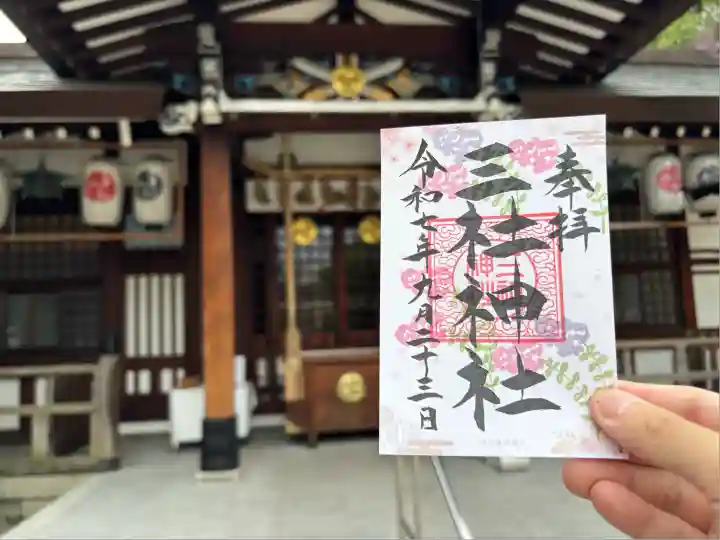 奉拝
三社神社
令和七年九月二十三日